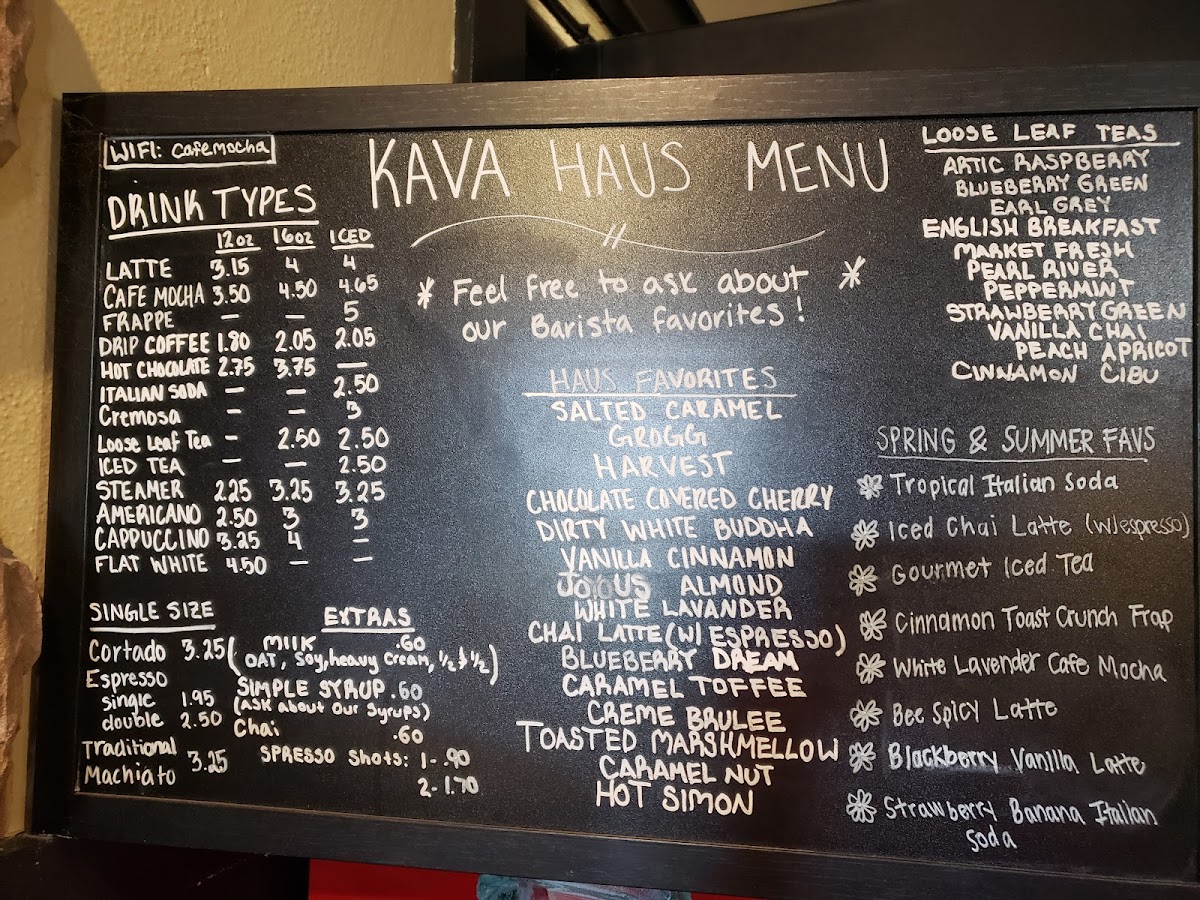 WIFI: cafemocha
DRINK TYPES
12oz 16oz ICED
LATTE 3.15 4 4
CAFE MOCHA 3.50 4.50 4.65
FRAPPE — — 5
DRIP COFFEE 1.80 2.05 2.05
HOT CHOCOLATE 2.75 3.75 —
ITALIAN SODA — — 2.50
Cremosa — — 3
Loose Leaf Tea — 2.50 2.50
ICED TEA — — 2.50
STEAMER 2.25 3.25 3.25
AMERICANO 2.50 3 3
CAPPUCCINO 3.25 4 —
FLAT WHITE 4.50 — —
SINGLE SIZE
Cortado 3.25
Espresso
single 1.95
double 2.50
Traditional
Machiato 3.25
EXTRAS
MILK .60
(OAT, Soy, heavy cream, 1/2 & 1/2)
SIMPLE SYRUP .60
(Ask about our syrups)
Chai .60
SPRESSO Shots: 1- .90
2- 1.70
KAVA HAUS MENU
* Feel free to ask about *
our Barista favorites!
HAUS FAVORITES
SALTED CARAMEL
GROGG
HARVEST
CHOCOLATE COVERED CHERRY
DIRTY WHITE BUDDHA
VANILLA CINNAMON
JOYOUS ALMOND
WHITE LAVANDER
CHAI LATTE (W/ ESPRESSO)
BLUEBERRY DREAM
CARAMEL TOFFEE
CREME BRULEE
TOASTED MARSHMELLOW
CARAMEL NUT
HOT SIMON
LOOSE LEAF TEAS
ARTIC RASPBERRY
BLUEBERRY GREEN
EARL GREY
ENGLISH BREAKFAST
MARKET FRESH
PEARL RIVER
PEPPERMINT
STRAWBERRY GREEN
VANILLA CHAI
PEACH APRICOT
CINNAMON CIBU
SPRING & SUMMER FAVS
Tropical Italian Soda
Iced Chai Latte (w/espresso)
Gourmet Iced Tea
Cinnamon Toast Crunch Frap
White Lavender Cafe Mocha
Bee Spicy Latte
Blackberry Vanilla Latte
Strawberry Banana Italian
Soda